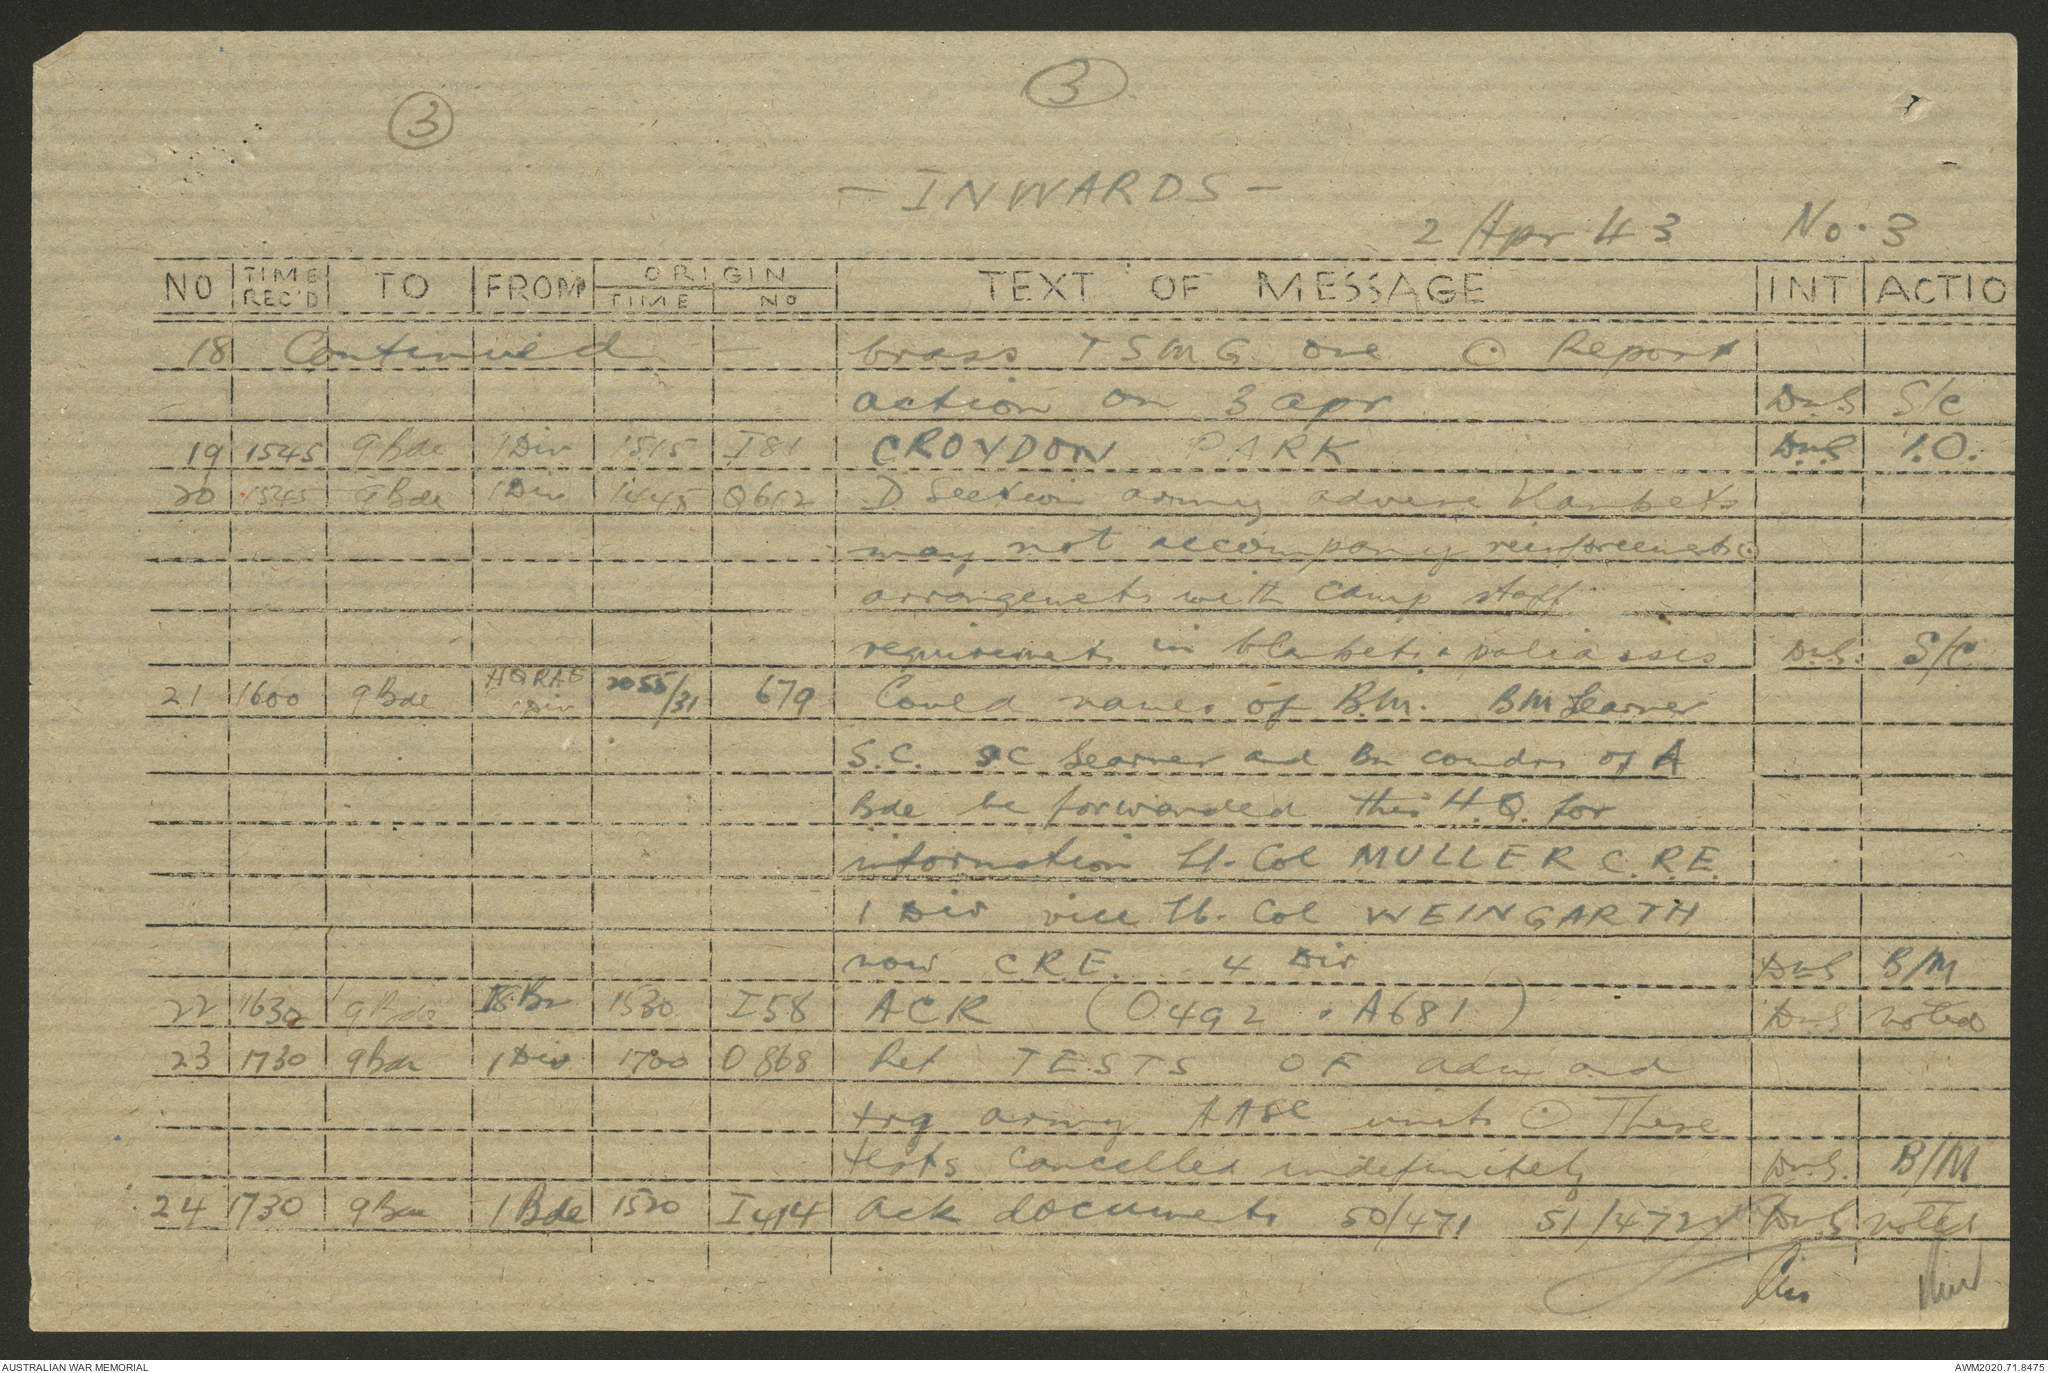 3
3
- INWARDS -
2 Apr 43 No. 3
NO TIME REC'D TO FROM ORIGIN TIME NO TEXT OF MESSAGE INT ACTIO
18 Continued - brass TSMG one ⊙ Report
action on 3 apr DMS S/C
19 1545 9 Bde 1 Div 1515 I81 CROYDON PARK DMS I.O.
20 1545 9 Bde 1 Div 1445 Q612 D Section army advise blankets
may not accompany reinforcements ⊙
arrangements with camp staff
requirements in blankets & paliasses DMS. S/C
21 1600 9 Bde HQ RAE 1 Div 2055/31 679 Could names of B.M. BM Learner
S.C. SC Learner and Bn comdrs of A
Bde be forwarded this H.Q. for
information Lt. Col MULLER C.R.E.
1 Div vice Lt. Col WEINGARTH
now CRE. 4 Div DMS B/M
22 1630 9 Bde 18 Bn 1530 I58 ACK (O492 & A681) DMS noted
23 1730 9 Bde 1 Div 1700 O868 Ref TESTS OF adm and
trg army AASC units ⊙ These
tests cancelled indefinitely DMS. B/M
24 1730 9 Bde 1 Bde 1520 I414 Ack documents 50/471 51/472 DMS noted
AUSTRALIAN WAR MEMORIAL AWM2020.71.8475